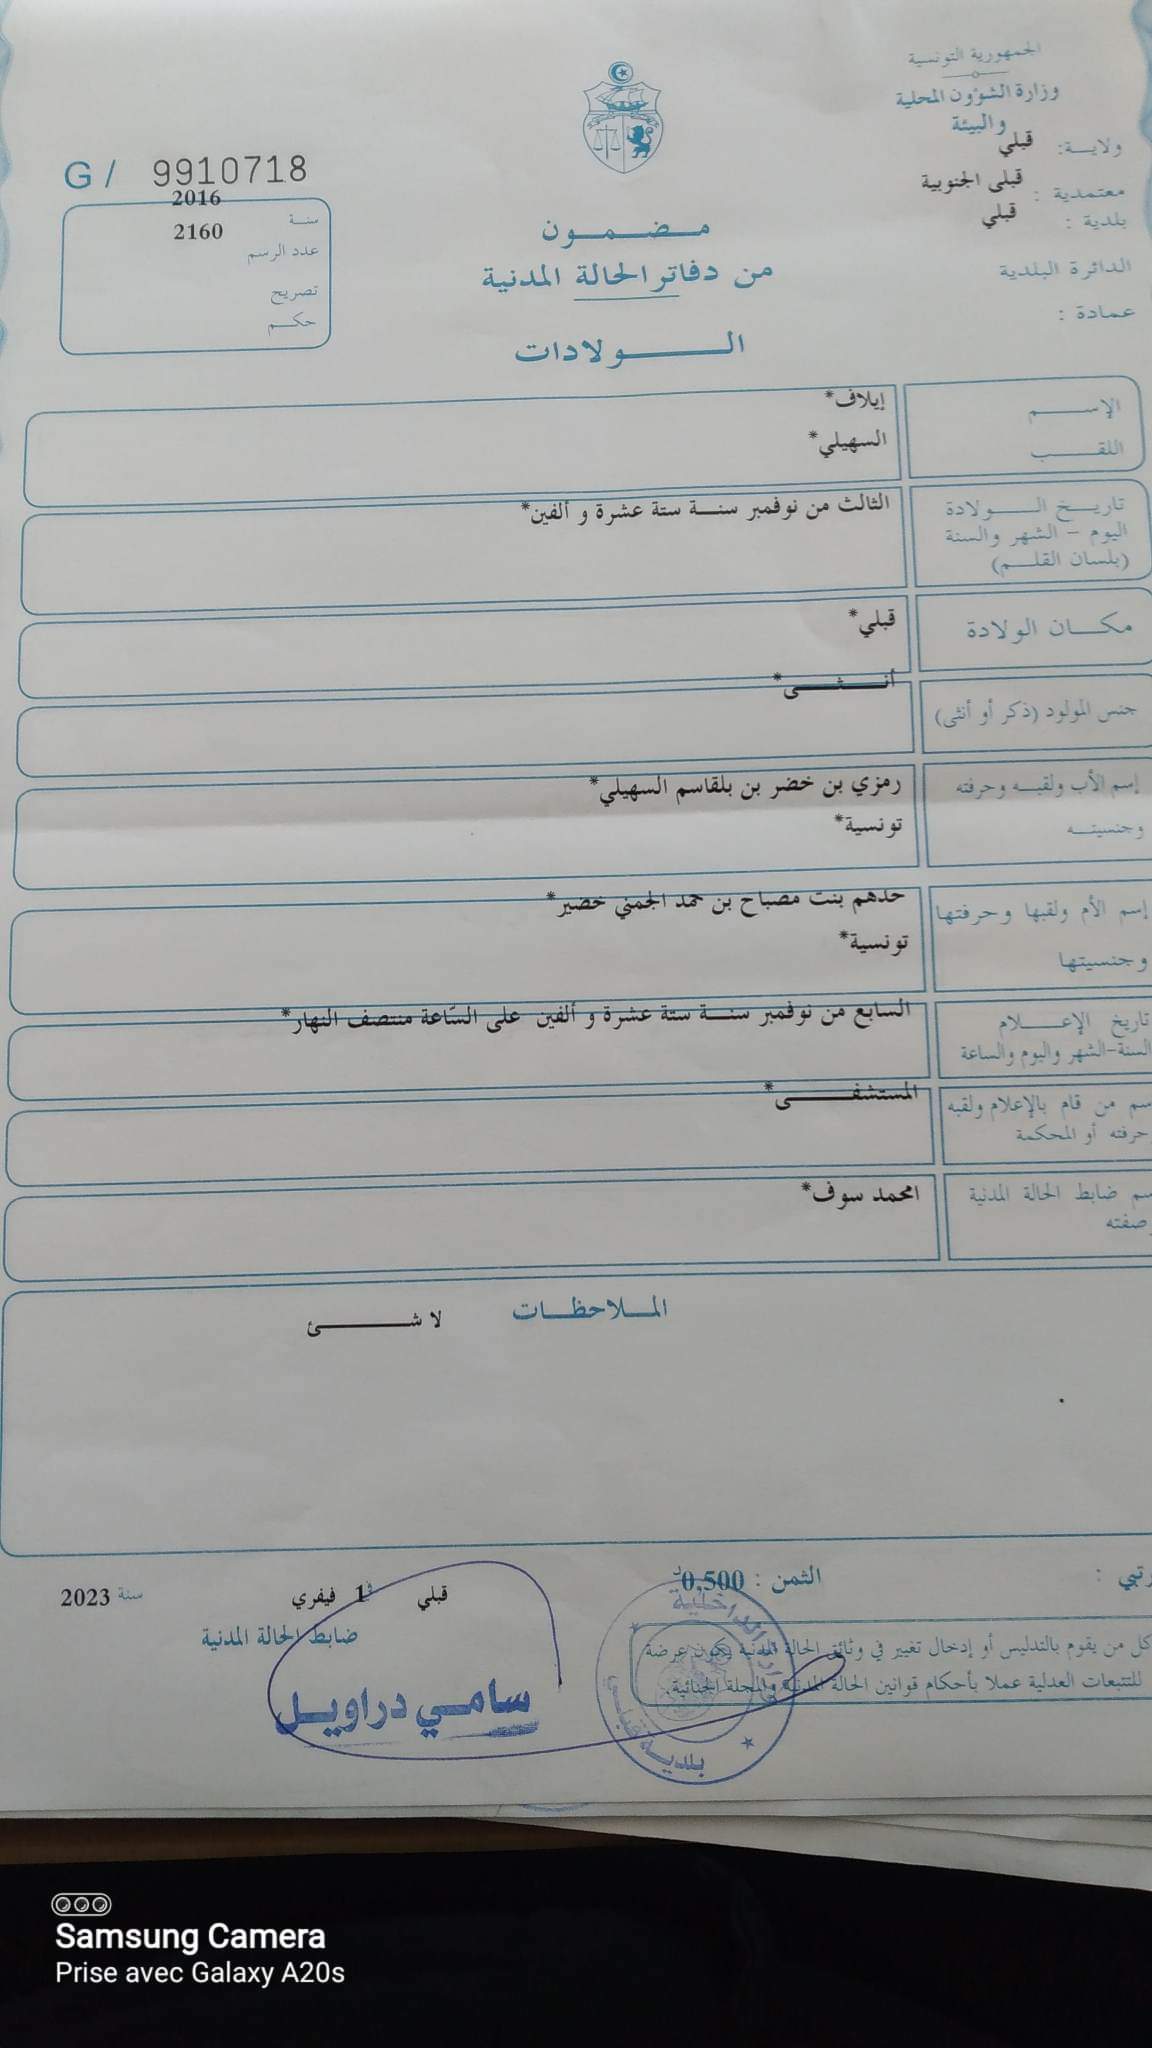 الجمهورية التونسية
وزارة الشؤون المحلية
والبيئة
ولاية: قبلي
معتمدية : قبلي الجنوبية
بلدية : قبلي
الدائرة البلدية
عمادة :
G / 9910718
سنة 2016
عدد الرسم 2160
تصريح
حكم
مضمون
من دفاتر الحالة المدنية
الولادات
الإسم إيلاف*
اللقب السهيلي*
تاريخ الولادة الثالث من نوفمبر سنة ستة عشرة و ألفين*
اليوم - الشهر والسنة
(بلسان القلم)
مكان الولادة قبلي*
جنس المولود (ذكر أو أنثى) أنثى*
إسم الأب ولقبه وحرفته رمزي بن خضر بن بلقاسم السهيلي*
وجنسيته تونسية*
إسم الأم ولقبها وحرفتها حدهم بنت مصباح بن حمد الجمني خضير*
وجنسيتها تونسية*
تاريخ الإعلام السابع من نوفمبر سنة ستة عشرة و ألفين على السّاعة منتصف النهار*
السنة-الشهر واليوم والساعة
سم من قام بالإعلام ولقبه المستشفى*
حرفته أو المحكمة
سم ضابط الحالة المدنية امحمد سوف*
صفته
الملاحظات
لا شئ
رتبي :
الثمن : 0,500د
قبلي في 1 فيفري سنة 2023
ضابط الحالة المدنية
سامي دراويل
كل من يقوم بالتدليس أو إدخال تغيير في وثائق الحالة المدنية يكون عرضة
للتتبعات العدلية عملا بأحكام قوانين الحالة المدنية والمجلة الجنائية.
بلدية قبلي
Samsung Camera
Prise avec Galaxy A20s